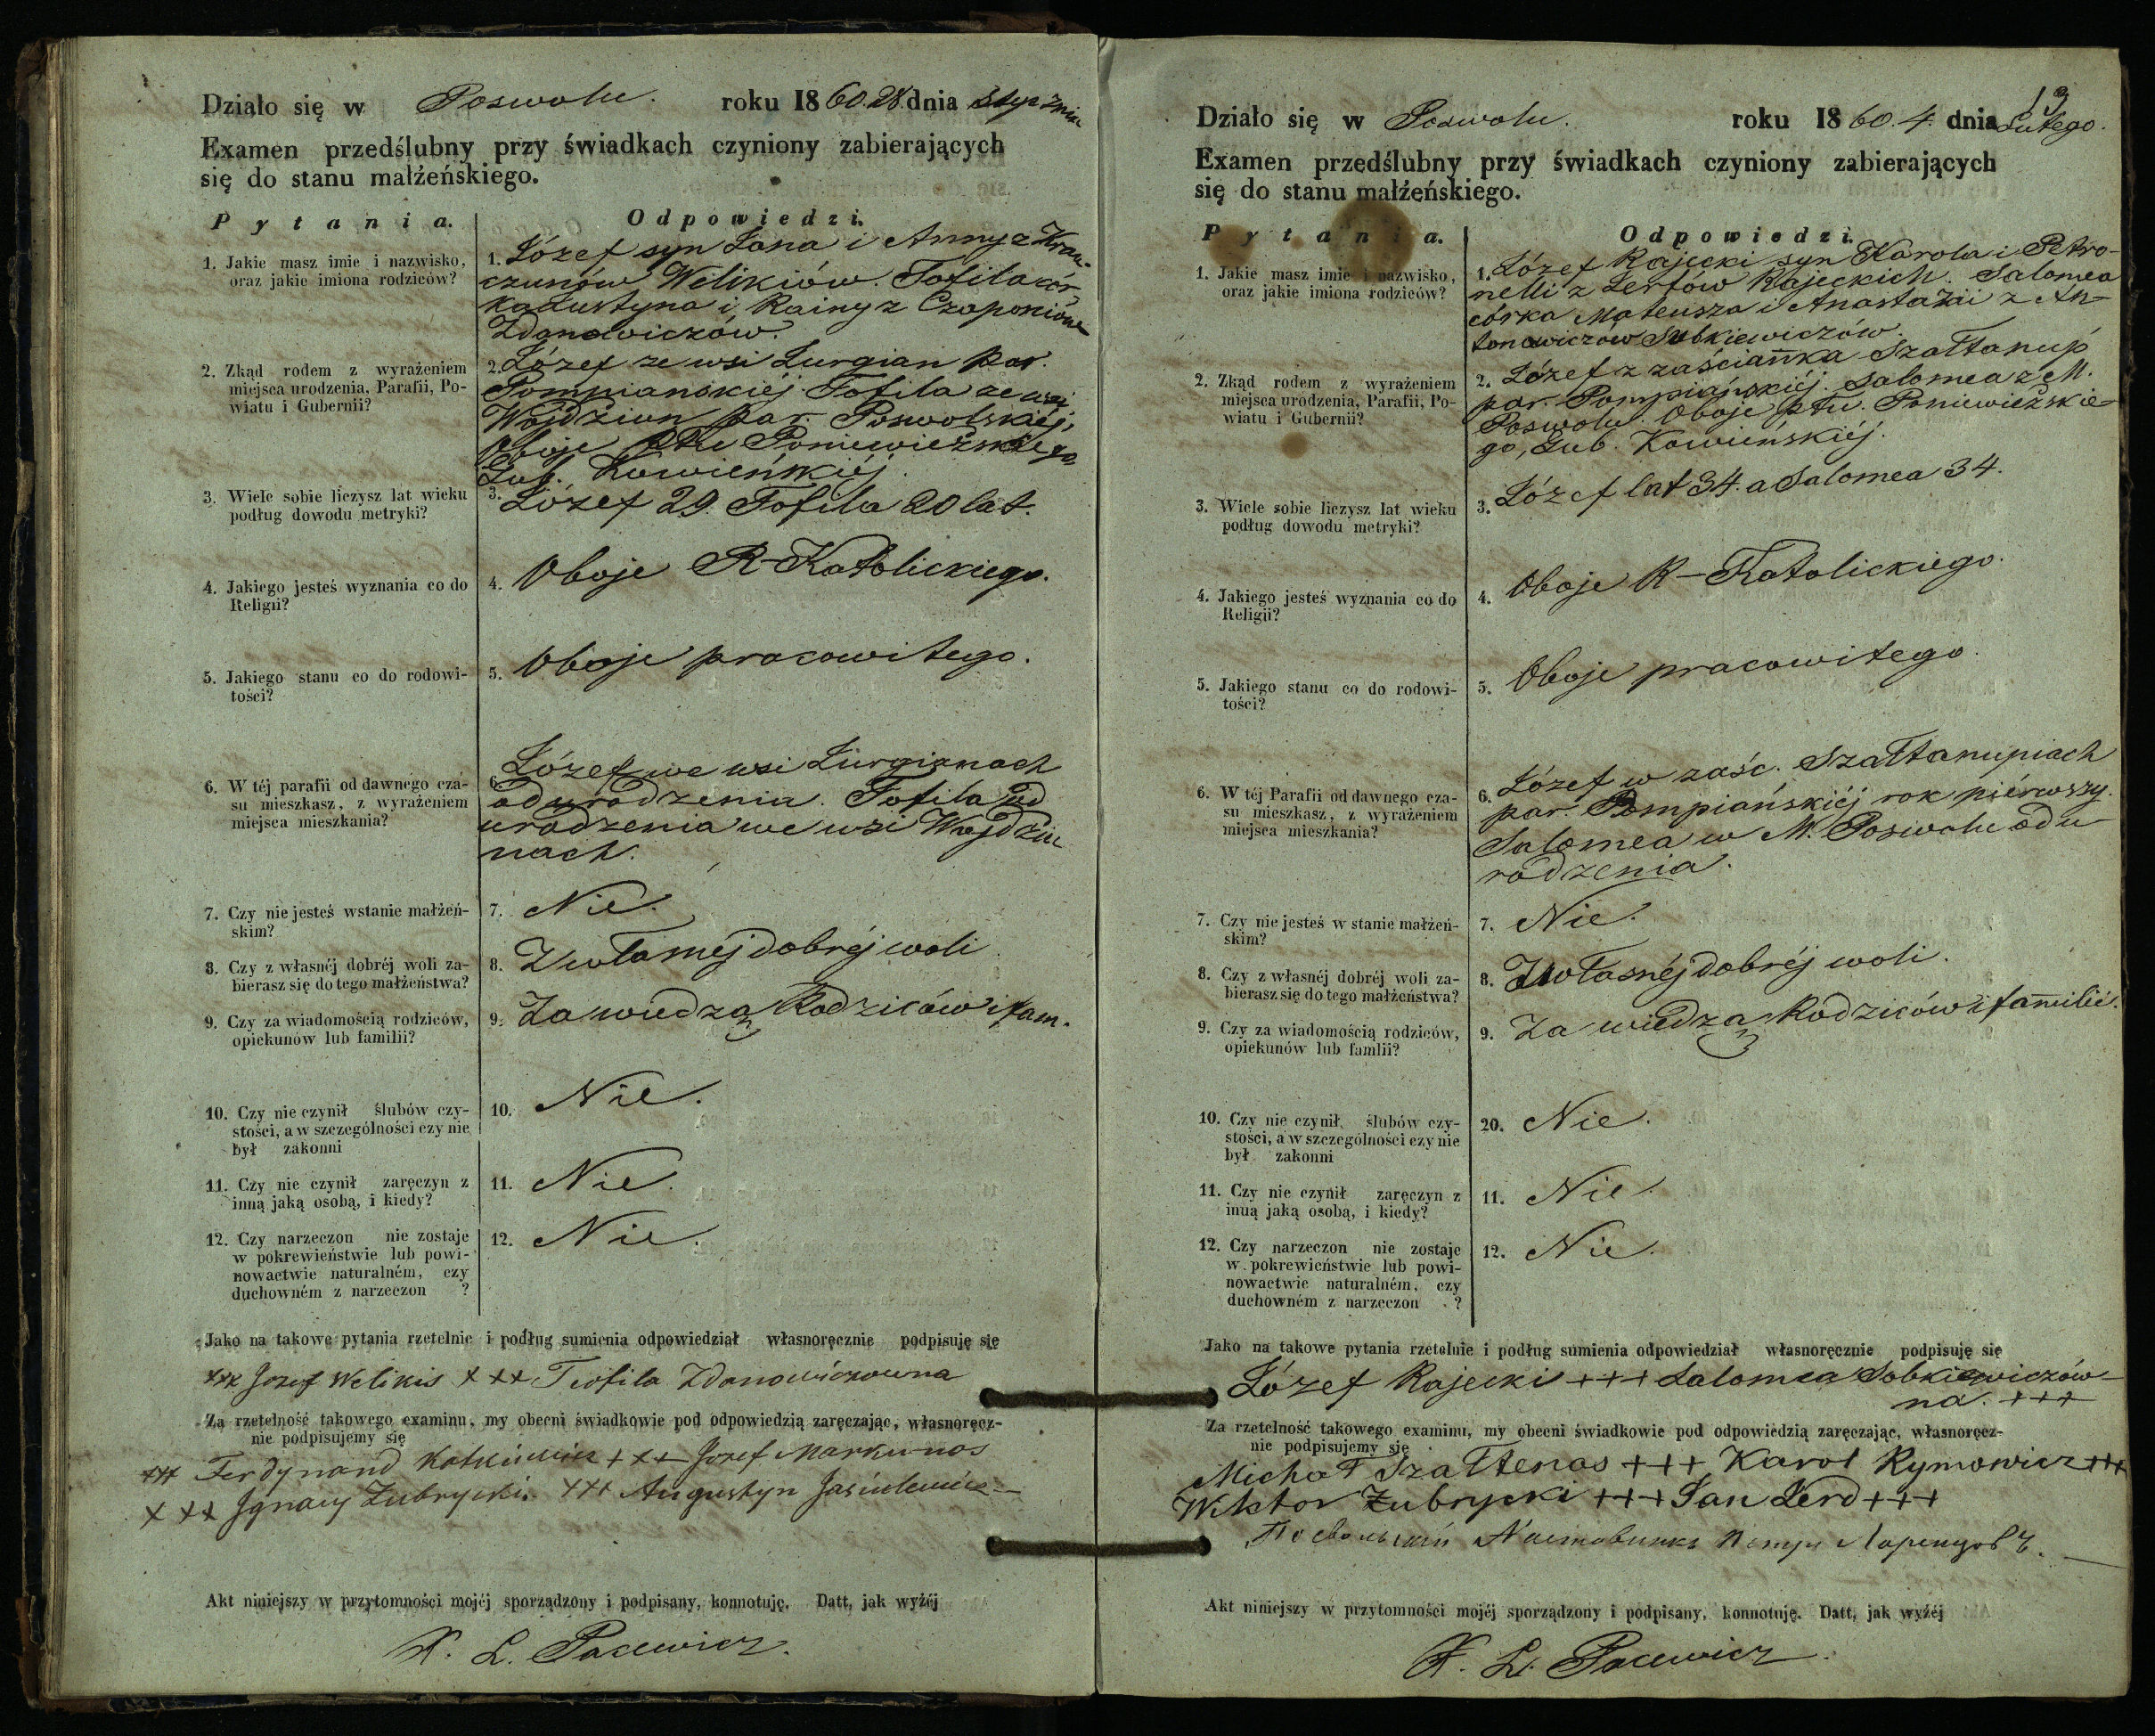 Działo się w Poswolu. roku 1860. 28. dnia Stycznia
Examen przedślubny przy świadkach czyniony zabierających
się do stanu małżeńskiego.
Pytania.
Odpowiedzi.
1. Jakie masz imie i nazwisko,
oraz jakie imiona rodziców?
1. Józef syn Jana i Anny z Kraw-
czunów Welikiów. Tofila cór-
ka Justyna i Rainy z Czaponiów
Zdanowiczów.
2. Zkąd rodem z wyrażeniem
miejsca urodzenia, Parafii, Po-
wiatu i Gubernii?
2. Józef ze wsi Jurgian par.
Pompianskiéj. Tofila ze wsi
Wojdziun par. Poswolskiéj,
Oboje Ptu Poniewieżskiego
Gub. Kowieńkiéj.
3. Wiele sobie liczysz lat wieku
podług dowodu metryki?
3. Józef 29. Tofila 20 lat.
4. Jakiego jesteś wyznania co do
Religii?
4. Oboje R-Katolickiego.
5. Jakiego stanu co do rodowi-
tości?
5. Oboje pracowitego.
6. W téj parafii od dawnego cza-
su mieszkasz, z wyrażeniem
miejsca mieszkania?
6. Józef we wsi Jurgianach
od urodzenia. Tofila od
urodzenia we wsi Wojdziu
nach.
7. Czy nie jesteś wstanie małżeń-
skim?
7. Nie.
8. Czy z własnéj dobréj woli za-
bierasz się do tego małżeństwa?
8. Z włamej dobréj woli
9. Czy za wiadomością rodziców,
opiekunów lub familii?
9. Za wiedzą Rodziców i fam.
10. Czy nie czynił ślubów czy-
stości, a w szczególności czy nie
był zakonni
10. Nie.
11. Czy nie czynił zaręczyn z
inną jaką osobą, i kiedy?
11. Nie.
12. Czy narzeczon nie zostaje
w pokrewieństwie lub powi-
nowactwie naturalném, czy
duchowném z narzeczon ?
12. Nie.
Jako na takowe pytania rzetelnie i podług sumienia odpowiedział własnoręcznie podpisuję się
xxx Jozef Welikis xxx Teofila Zdanowiczowna
Za rzetelność takowego examinu, my obecni świadkowie pod odpowiedzią zaręczając, własnoręcz-
nie podpisujemy się
xxx Ferdynand xxx Jozef Markunos
xxx Ignacy Zubrycki xxx Augustyn
Akt niniejszy w przytomności mojéj sporządzony i podpisany, konnotuję. Datt, jak wyżéj
X. L. Pacewicz.
13
Działo się w Poswolu. roku 1860. 4. dnia Lutego.
Examen przedślubny przy świadkach czyniony zabierających
się do stanu małżeńskiego.
Pytania.
Odpowiedzi.
1. Jakie masz imie i nazwisko,
oraz jakie imiona rodziców?
1. Józef Rajecki syn Karola i Petro-
nelli z Lerdów Rajeckich. Salomea
córka Mateusza i Anastazii z An-
tonowiczów Sobkiewiczów.
2. Zkąd rodem z wyrażeniem
miejsca urodzenia, Parafii, Po-
wiatu i Gubernii?
2. Józef z zaścianka Szałtanup
par. Pompiańskiéj. Salomea z M.
Poswolu. Oboje ptu. Poniewieżskie-
go, Gub. Kowieńskiéj.
3. Wiele sobie liczysz lat wieku
podług dowodu metryki?
3. Józef lat 34. a Salomea 34.
4. Jakiego jesteś wyznania co do
Religii?
4. Oboje R-Katolickiego.
5. Jakiego stanu co do rodowi-
tości?
5. Oboje pracowitego.
6. W téj Parafii od dawnego cza-
su mieszkasz, z wyrażeniem
miejsca mieszkania?
6. Józef w zaśc. Szałtanupiach
par. Pompiańskiéj rok piérwszy.
Salomea w M. Poswolu od u-
rodzenia.
7. Czy nie jesteś w stanie małżeń-
skim?
7. Nie.
8. Czy z własnéj dobréj woli za-
bierasz się do tego małżeństwa?
8. Z własnéj dobréj woli.
9. Czy za wiadomością rodziców,
opiekunów lub famlii?
9. Za wiedzą Rodziców i familii.
10. Czy nie czynił ślubów czy-
stości, a w szczególności czy nie
był zakonni
20. Nie.
11. Czy nie czynił zaręczyn z
inuą jaką osobą, i kiedy?
11. Nie.
12. Czy narzeczon nie zostaje
w pokrewieństwie lub powi-
nowactwie naturalném, czy
duchowném z narzeczon ?
12. Nie.
Jako na takowe pytania rzetelnie i podług sumienia odpowiedział własnoręcznie podpisuję się
Józef Rajecki +++ Salomea Sobkiewiczów-
na. +++
Za rzetelność takowego examinu, my obecni świadkowie pod odpowiedzią zaręczając, własnoręcz-
nie podpisujemy się
Michał Szałtenas +++ Karol Rymowicz +++
Wiktor Zubrycki +++ Jan Lerd +++
Akt niniejszy w przytomności mojéj sporządzony i podpisany, konnotuję. Datt, jak wyżéj
X. L. Pacewicz.